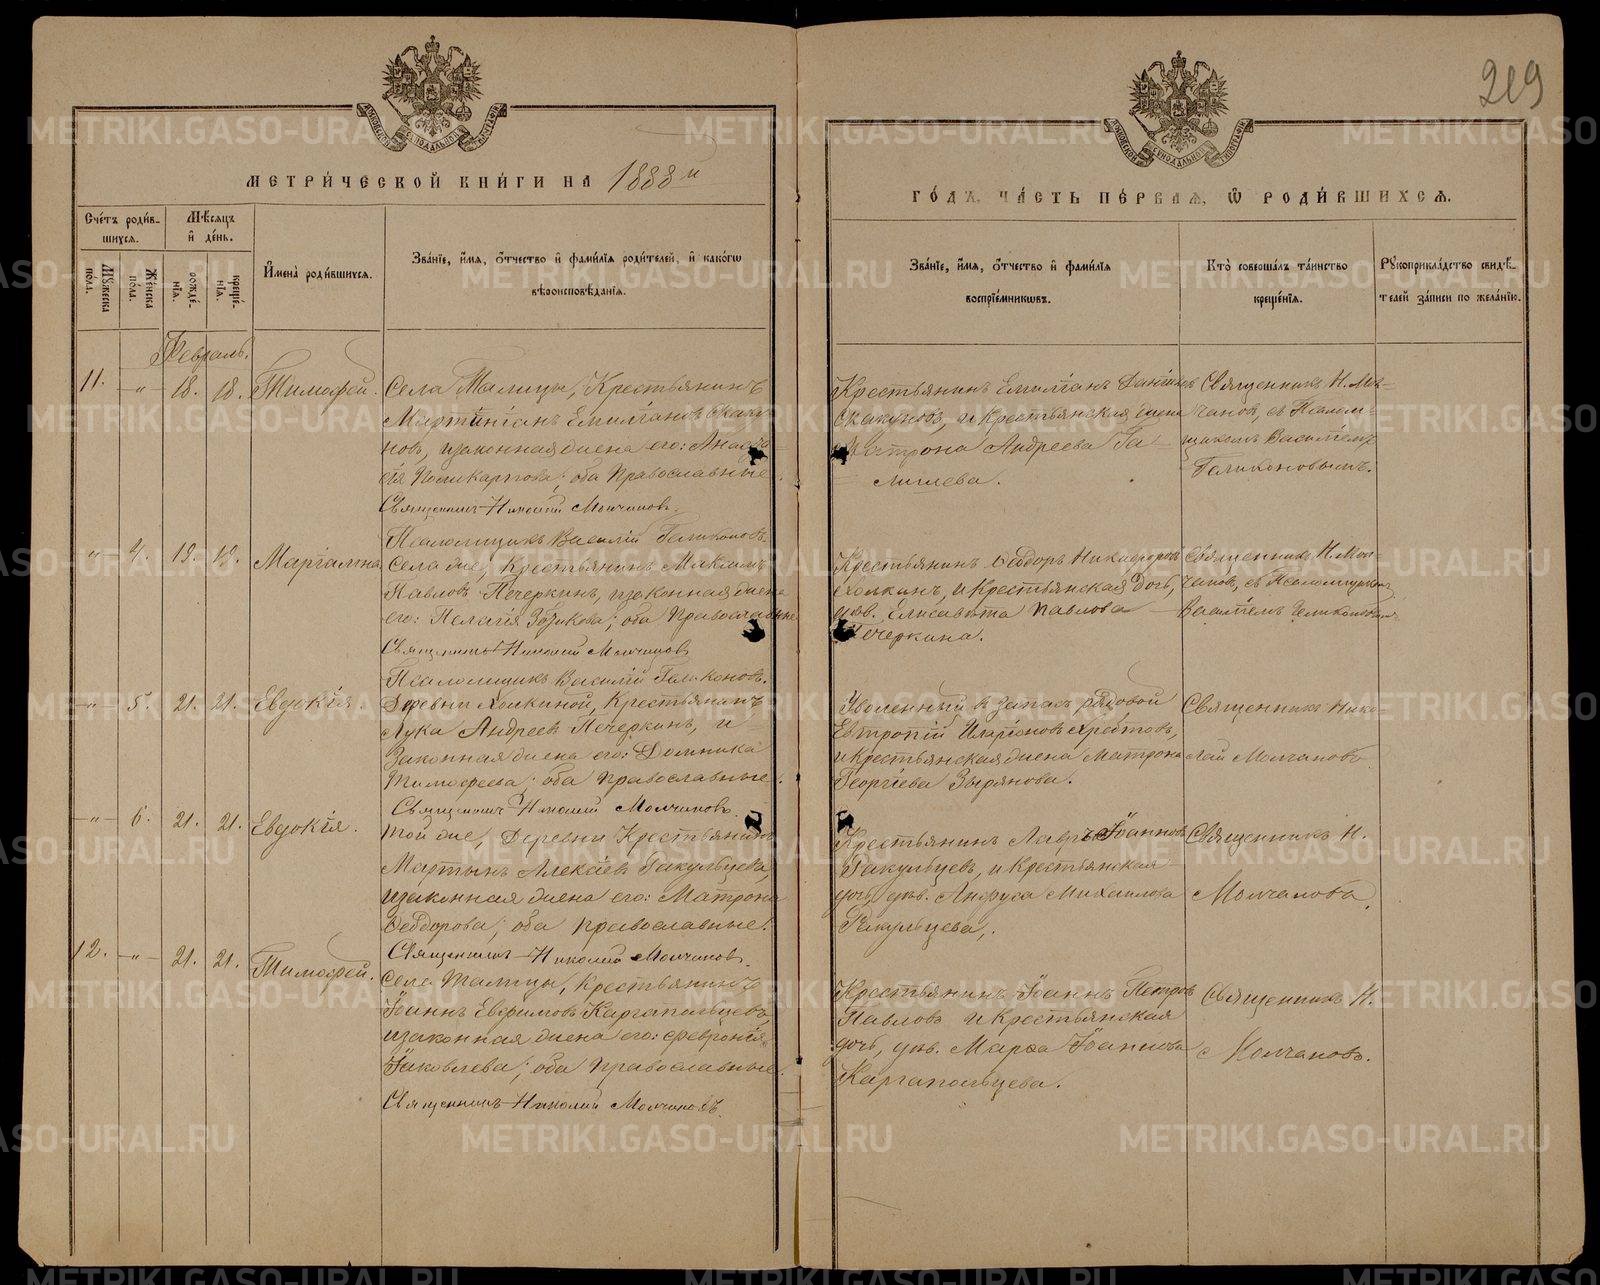 219
МЕТРИ́ЧЕСКОЙ КНИ́ГИ НА 1888 й
ГО́ДЪ, ЧА́СТЬ ПЕ́РВАЯ, Ѡ РОДИ́ВШИХСЯ.
Сче́тъ роди́вшихся.
Мꙋжеска по́ла.
Же́нска по́ла.
Мѣ́сяцъ и де́нь.
рожде́нїя.
креще́нїя.
И҆мена̀ роди́вшихся.
Зва́нїе, и҆́мя, о҆́тчество и҆ фами́лїя роди́телей, и҆ како́гѡ
вѣроисповѣ́данїя.
Зва́нїе, и҆́мя, о҆́тчество и҆ фами́лїя
воспрїе́мникѡвъ.
Кто̀ соверша́лъ та́инство
креще́нїя.
Рꙋкоприкла́дство свидѣ́телей за́писи по жела́нїю.
Февраль.
11. — " — 18. 18. Тимофей.
Села Талицы, Крестьянинъ
Мартинїанъ Емилїановъ Скаку-
новъ, и законная жена его: Анаста-
сїя Поликарпова; оба Православные.
Священникъ Николай Молчановъ.
Псаломщикъ Василїй Геликоновъ.
Крестьянинъ Емилїанъ Данїиловъ
Скакуновъ, и Крестьянская жена
Матрона Андреева Га-
лишева.
Священникъ Н. Мол-
чановъ, съ Псалом-
щикомъ Василїемъ
Геликоновымъ.
" 4. 19. 19. Марїамна
Села тоже, Крестьянинъ Максимъ
Павловъ Печеркинъ, и законная жена
его: Пелагїя Зотикова; оба Православные.
Священникъ Николай Молчановъ
Псаломщикъ Василїй Геликоновъ.
Крестьянинъ Ѳеодоръ Никифоровъ
Холкинъ, и Крестьянская дочь,
дѣв. Елисавета Павлова
Печеркина.
Священникъ Н. Мол-
чановъ, съ Псаломщикомъ
Василїемъ Геликоновымъ
" 5. 21. 21. Евдокїя.
Деревни Холкиной, Крестьянинъ
Лука Андреевъ Печеркинъ, и
Законная жена его: Домника
Тимофеева; оба православные.
Священникъ Николай Молчановъ.
Уволенный въ запасъ рядовой
Евтропїй Иларїоновъ Хребтовъ,
и крестьянская жена Матрона
Георгїева Зырянова.
Священникъ Нико-
лай Молчановъ
" 6. 21. 21. Евдокїя.
Той же, Деревни Крестьянинъ
Мартынъ Алексѣевъ Гакульцевъ,
и законная жена его: Матрона
Ѳеодорова; оба православные.
Священникъ Николай Молчановъ.
Крестьянинъ Лавръ Їоанновъ
Гакульцевъ, и Крестьянская
дочь, дѣв. Михаилова
Гакульцева.
Священникъ Н.
Молчановъ.
12. " 21. 21. Тимофей.
Села Талицы, Крестьянинъ
Їоаннъ Евфимовъ Каргапольцевъ,
и законная жена его: Феврониїя
Їаковлева; оба православные.
Священникъ Николай Молчановъ.
Крестьянинъ Їоаннъ Петровъ
Павловъ и Крестьянская
дочь, дѣв. Марѳа Їоаннова
Каргапольцева.
Священникъ Н.
Молчановъ.
METRIKI.GASO-URAL.RU